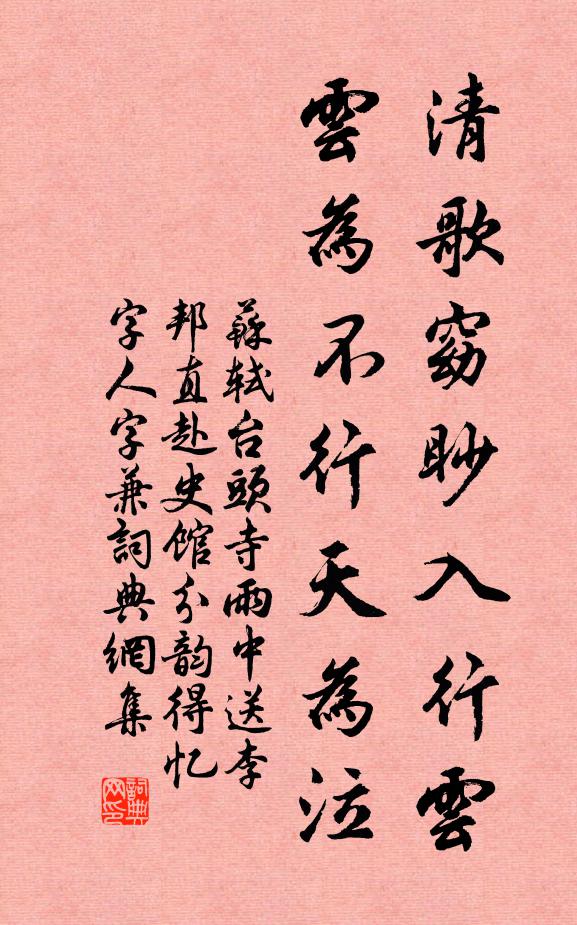 清歌窈眇入行雲
雲為不行天為泣
蘇軾台頭寺雨中送李
邦直赴史館分韵得忆
字人字兼詞典網集
詞典网印